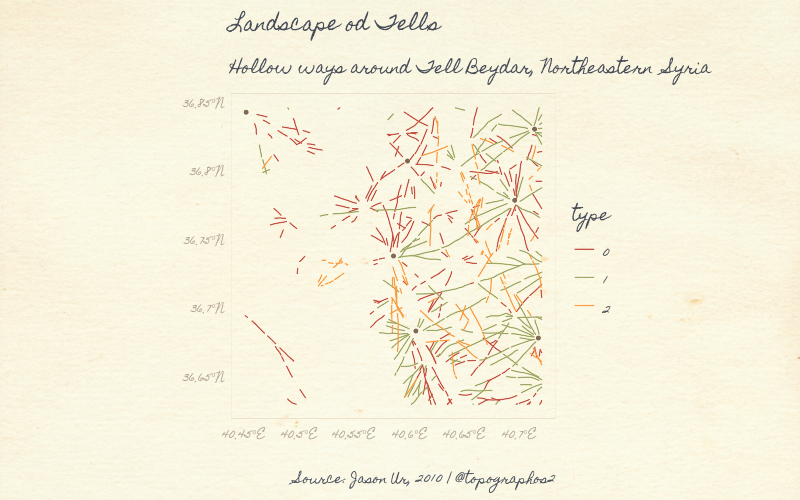 Landscape od Tells
Hollow ways around Tell Beydar, Northeastern Syria
36.85°N
36.8°N
36.75°N
36.7°N
36.65°N
40.45°E 40.5°E 40.55°E 40.6°E 40.65°E 40.7°E
type
0
1
2
Source: Jason Ur, 2010 | @topographos2